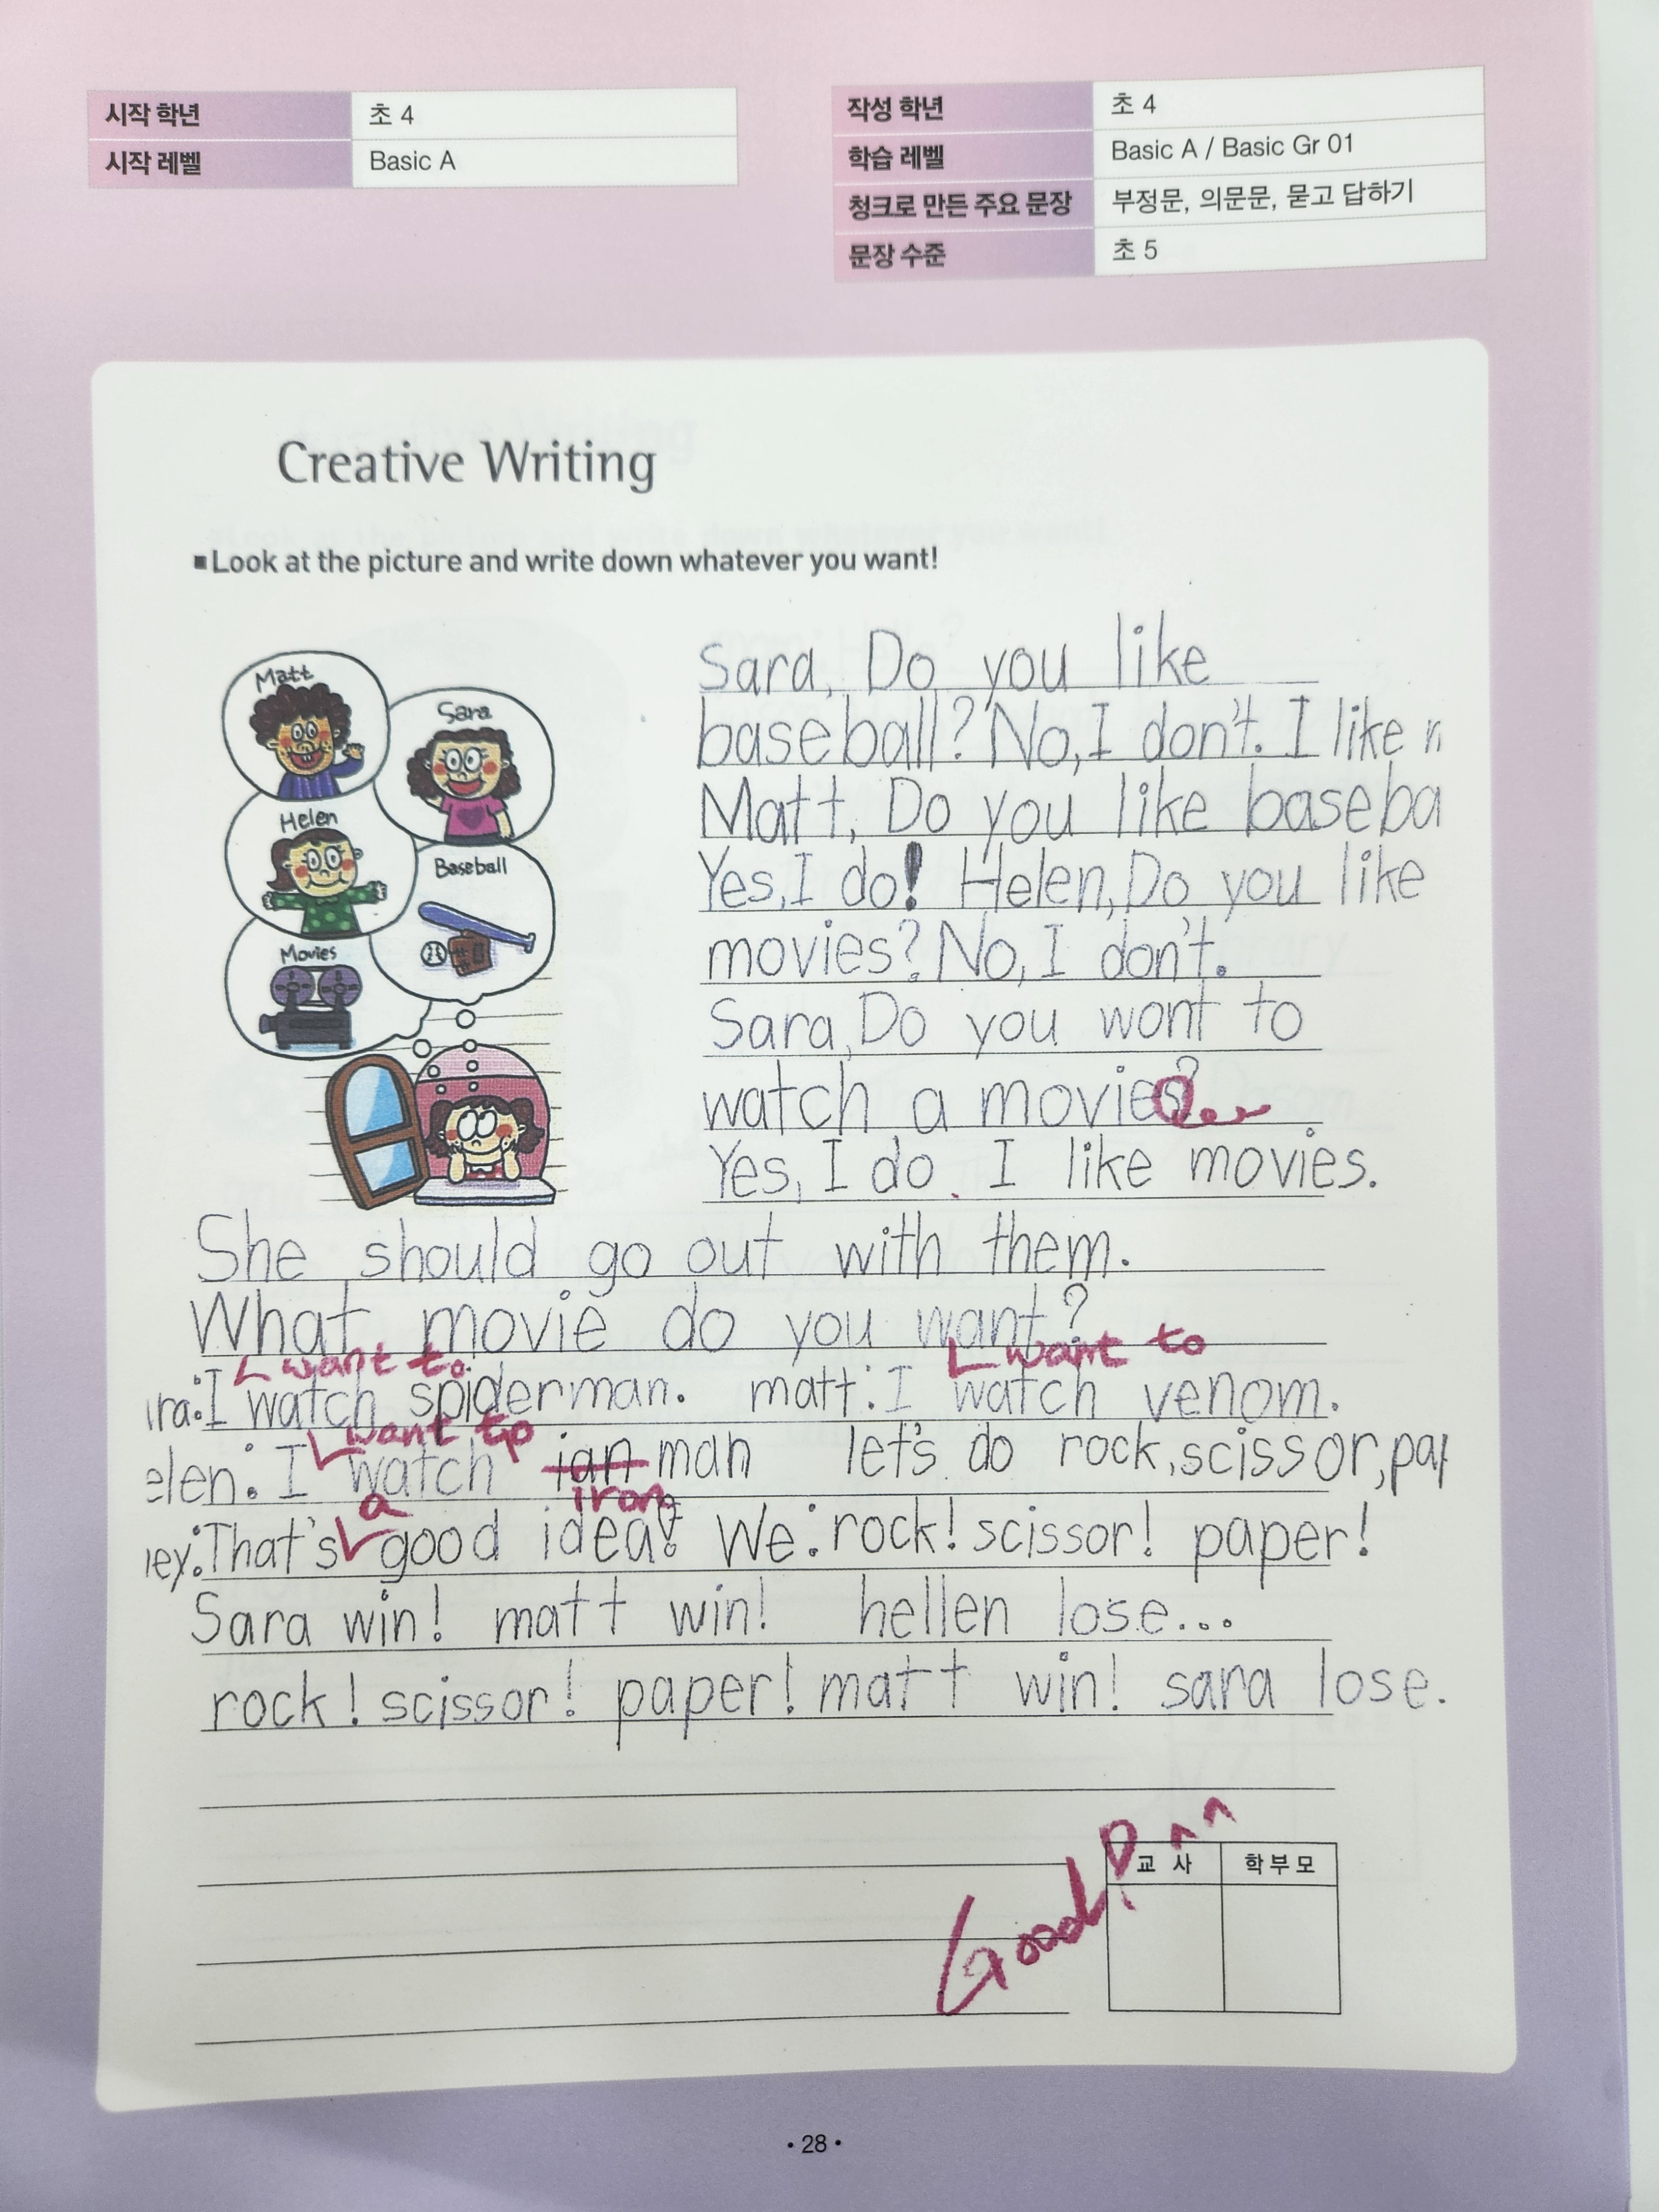 시작 학년 초 4
시작 레벨 Basic A
작성 학년 초 4
학습 레벨 Basic A / Basic Gr 01
청크로 만든 주요 문장 부정문, 의문문, 묻고 답하기
문장 수준 초 5
Creative Writing
■ Look at the picture and write down whatever you want!
Matt
Sara
Helen
Baseball
Movies
Sara, Do you like
baseball? No, I don't. I like
Matt, Do you like baseba
Yes, I do! Helen, Do you like
movies? No, I don't.
Sara, Do you wont to
watch a movies?
Yes, I do. I like movies.
She should go out with them.
What movie do you want?
want to
want to
ıra: I watch spiderman. matt: I watch venom.
want to
elen: I watch ian man let's do rock, scissor, pap
a
iron
ıey: That's good idea! We: rock! scissor! paper!
Sara win! matt win! hellen lose...
rock! scissor! paper! matt win! sara lose.
Good! ^^
교 사 학부모
• 28 •